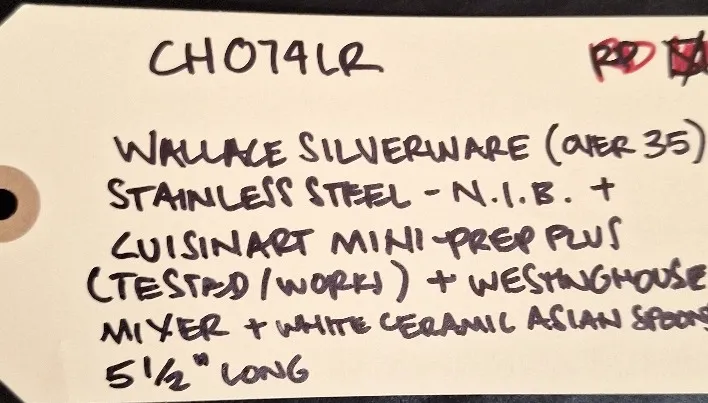 CH074LR
WALLACE SILVERWARE (OVER 35)
STAINLESS STEEL - N.I.B. +
CUISINART MINI-PREP PLUS
(TESTED/WORKS) + WESTINGHOUSE
MIXER + WHITE CERAMIC ASIAN SPOONS
5 1/2" LONG